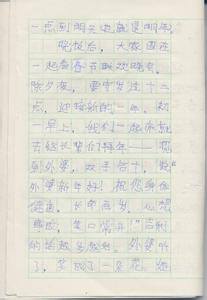 一点到明天也就是明年。
晚饭后，大家围在
一起看春节联欢晚会。
除夕夜，要守岁过十二
点，迎接新的一年。初
一早上，我们一起床就
去给长辈们拜年——
到外婆，双手合十，说“
外婆新年好！祝您身体
健康，长命百岁，心想
事成，笑口常开！”吉利
的话越多越好。外婆听
了，笑成了一朵花。